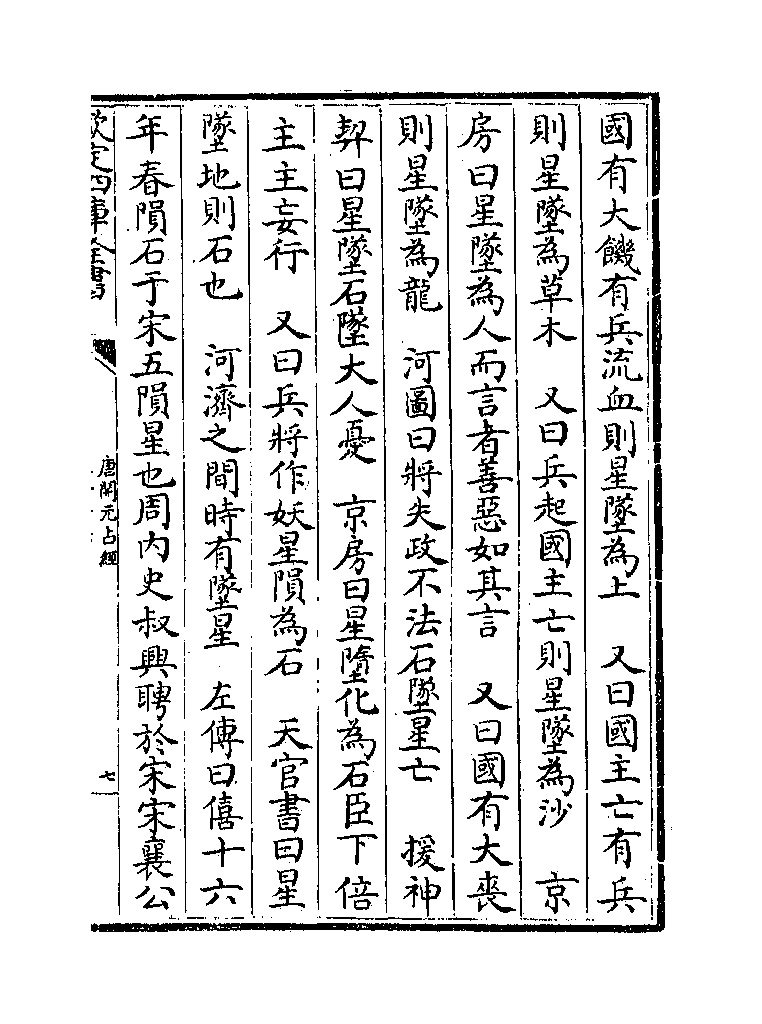 國有大饑有兵流血則星墜為上　又曰國主亡有兵
則星墜為草木　又曰兵起國主亡則星墜為沙　京
房曰星墜為人而言者善惡如其言　又曰國有大喪
則星墜為龍　河圖曰將失政不法石墜星亡　援神
契曰星墜石墜大人憂　京房曰星墮化為石臣下倍
主主妄行　又曰兵將作妖星隕為石　天官書曰星
墜地則石也　河濟之間時有墜星　左傳曰僖十六
年春隕石于宋五隕星也周内史叔興聘於宋宋襄公
欽定四庫全書
唐開元占經
七